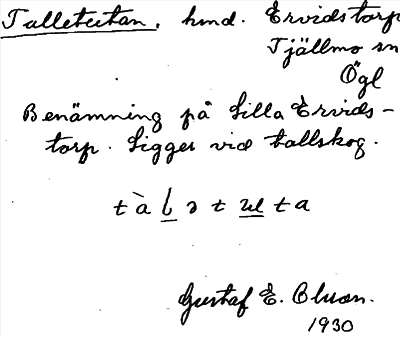 Talletutan, hmd. Ervidstorp
Tjällmo sn
Ögl
Benämning på Lilla Ervids-
torp. Ligger vid tallskog.
tàlətuta
Gustaf E. Bluan.
1930